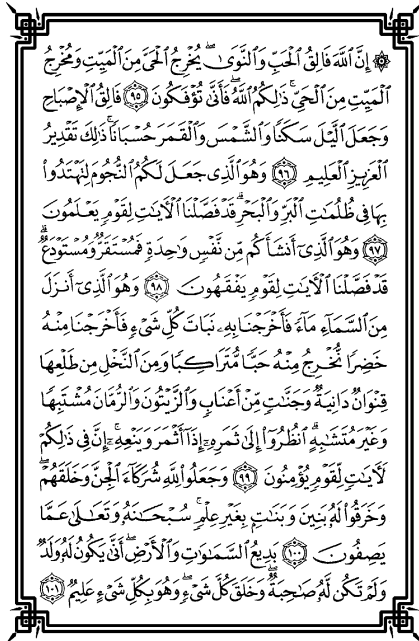 ۞ إِنَّ ٱللَّهَ فَالِقُ ٱلْحَبِّ وَٱلنَّوَىٰۖ يُخْرِجُ ٱلْحَىَّ مِنَ ٱلْمَيِّتِ وَمُخْرِجُ
ٱلْمَيِّتِ مِنَ ٱلْحَىِّۚ ذَٰلِكُمُ ٱللَّهُۖ فَأَنَّىٰ تُؤْفَكُونَ ۝٩٥ فَالِقُ ٱلْإِصْبَاحِ
وَجَعَلَ ٱلَّيْلَ سَكَنًا وَٱلشَّمْسَ وَٱلْقَمَرَ حُسْبَانًاۚ ذَٰلِكَ تَقْدِيرُ
ٱلْعَزِيزِ ٱلْعَلِيمِ ۝٩٦ وَهُوَ ٱلَّذِى جَعَلَ لَكُمُ ٱلنُّجُومَ لِتَهْتَدُوا۟
بِهَا فِى ظُلُمَٰتِ ٱلْبَرِّ وَٱلْبَحْرِۗ قَدْ فَصَّلْنَا ٱلْـَٔايَٰتِ لِقَوْمٍ يَعْلَمُونَ
۝٩٧ وَهُوَ ٱلَّذِىٓ أَنشَأَكُم مِّن نَّفْسٍ وَٰحِدَةٍ فَمُسْتَقَرٌّ وَمُسْتَوْدَعٌۗ
قَدْ فَصَّلْنَا ٱلْـَٔايَٰتِ لِقَوْمٍ يَفْقَهُونَ ۝٩٨ وَهُوَ ٱلَّذِىٓ أَنزَلَ
مِنَ ٱلسَّمَآءِ مَآءً فَأَخْرَجْنَا بِهِۦ نَبَاتَ كُلِّ شَىْءٍ فَأَخْرَجْنَا مِنْهُ
خَضِرًا نُّخْرِجُ مِنْهُ حَبًّا مُّتَرَاكِبًا وَمِنَ ٱلنَّخْلِ مِن طَلْعِهَا
قِنْوَانٌ دَانِيَةٌ وَجَنَّٰتٍ مِّنْ أَعْنَابٍ وَٱلزَّيْتُونَ وَٱلرُّمَّانَ مُشْتَبِهًا
وَغَيْرَ مُتَشَٰبِهٍۗ ٱنظُرُوٓا۟ إِلَىٰ ثَمَرِهِۦٓ إِذَآ أَثْمَرَ وَيَنْعِهِۦٓۚ إِنَّ فِى ذَٰلِكُمْ
لَـَٔايَٰتٍ لِّقَوْمٍ يُؤْمِنُونَ ۝٩٩ وَجَعَلُوا۟ لِلَّهِ شُرَكَآءَ ٱلْجِنَّ وَخَلَقَهُمْۖ
وَخَرَقُوا۟ لَهُۥ بَنِينَ وَبَنَٰتٍۭ بِغَيْرِ عِلْمٍۚ سُبْحَٰنَهُۥ وَتَعَٰلَىٰ عَمَّا
يَصِفُونَ ۝١٠٠ بَدِيعُ ٱلسَّمَٰوَٰتِ وَٱلْأَرْضِۖ أَنَّىٰ يَكُونُ لَهُۥ وَلَدٌ
وَلَمْ تَكُن لَّهُۥ صَٰحِبَةٌۖ وَخَلَقَ كُلَّ شَىْءٍۖ وَهُوَ بِكُلِّ شَىْءٍ عَلِيمٌ ۝١٠١